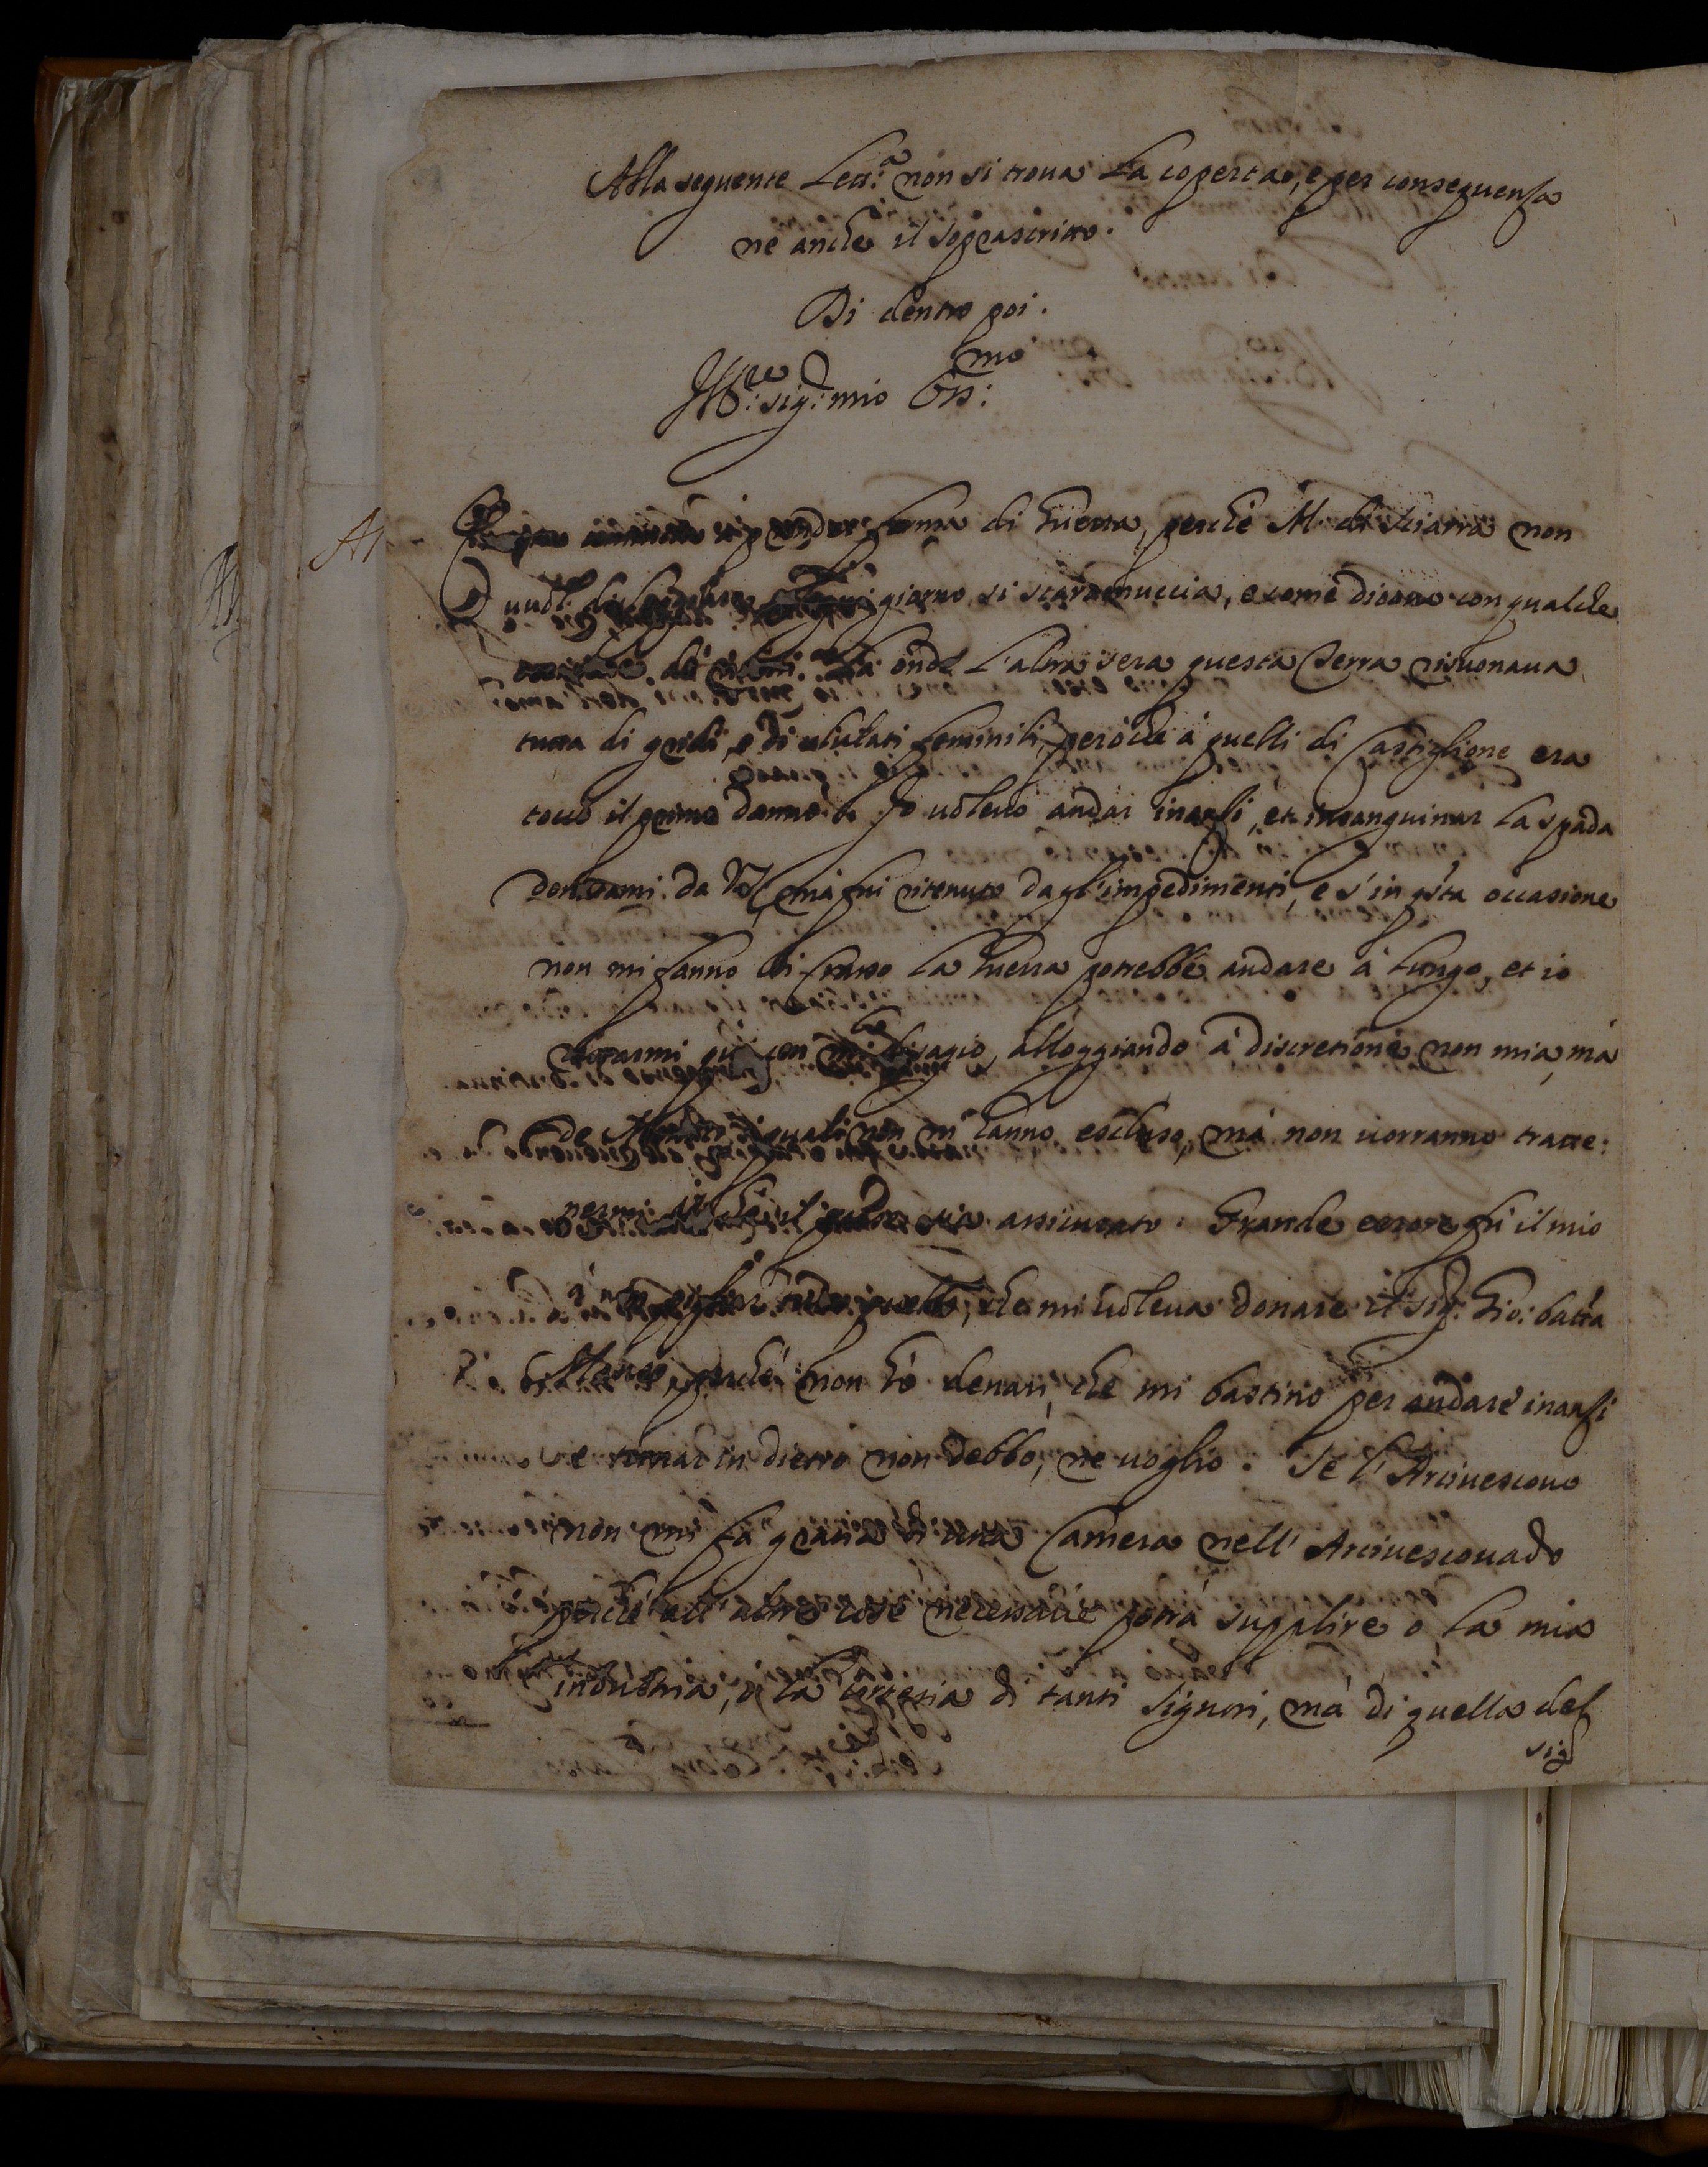 Alla seguente Lett.ª non si troua la coperta, e per conseguenza
ne anche il soprascritto.
Di dentro poi.
Ill.re sig.r mio Oss.mo
forma di Guerra, perche M. di Sciarra non
giorno si scaramuccia, e come dicono con qualche
onde l'altra sera questa Terra risuonaua
tutta di gridi, e di ululati feminili, peròche à quelli di Castiglione era
toccò il primo danno. Io uoleuo andar inanzi, et insanguinar la spada
donatami da VS, mà fui ritenuto dagl'impedimenti, e s'in q'sta occasione
non mi fanno la Guerra potrebbe andare à lungo, et io
quì con disagio, alloggiando à discretione non mia, mà
de i quali non m'hanno escluso, mà non uorranno tratte:
nermi sia assicurato. Grande errore fù il mio
à non pigliar quello, che mi uoleua donare il sig.r Gio: batta
Manso, perchè non hò denari, che mi bastino per andare inanzi
e tornar in dietro non debbo, ne uoglio. Se l'Arciuescouo
non mi fà gratia di una Camera nell'Arciuescouado
perche all'altre cose necessarie potrà supplire o la mia
industria, o la cortesia di tanti Signori, mà di quella del
sig.r